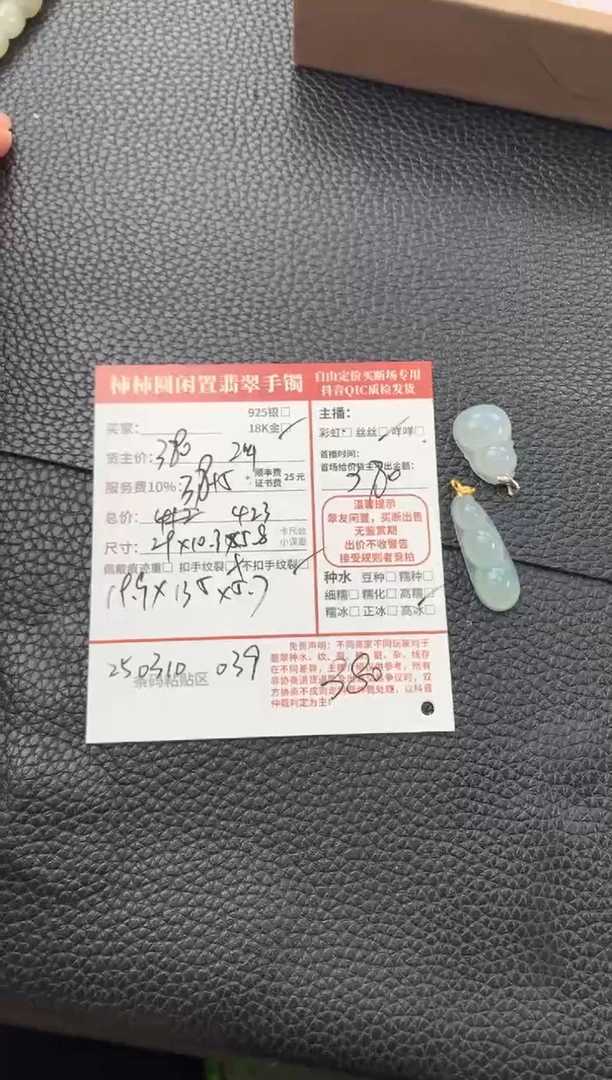 柿柿圆闲置翡翠手镯
自由定价买断场专用
抖音QIC质检发货
925银□
买家：
18K金□
货主价：380
服务费10%：38+5 + 顺丰费 证书费 25元
总价：423
尺寸：29×10.3×5.8 卡尺台 小误差
佩戴痕迹重□ 扣手纹裂□ 不扣手纹裂□
19.9×13.5×5.7
250310 039
条码粘贴区
主播：
彩虹□ 丝丝□ 咩咩□
首播时间：
首场给价货主不出金额：
380
温馨提示
翠友闲置，买断出售
无鉴赏期
出价不收警告
接受规则者竞拍
种水 豆种□ 糯种□
细糯□ 糯化□ 高糯□
糯冰□ 正冰□ 高冰□
免责声明：不同商家不同玩家对于
翡翠种水、纹、脏、杂、线存
在不同差异，主播 参考，所有
非协商退货 争议时，双
方协商不成 仲裁处理，以抖音
仲裁判定为主！
380